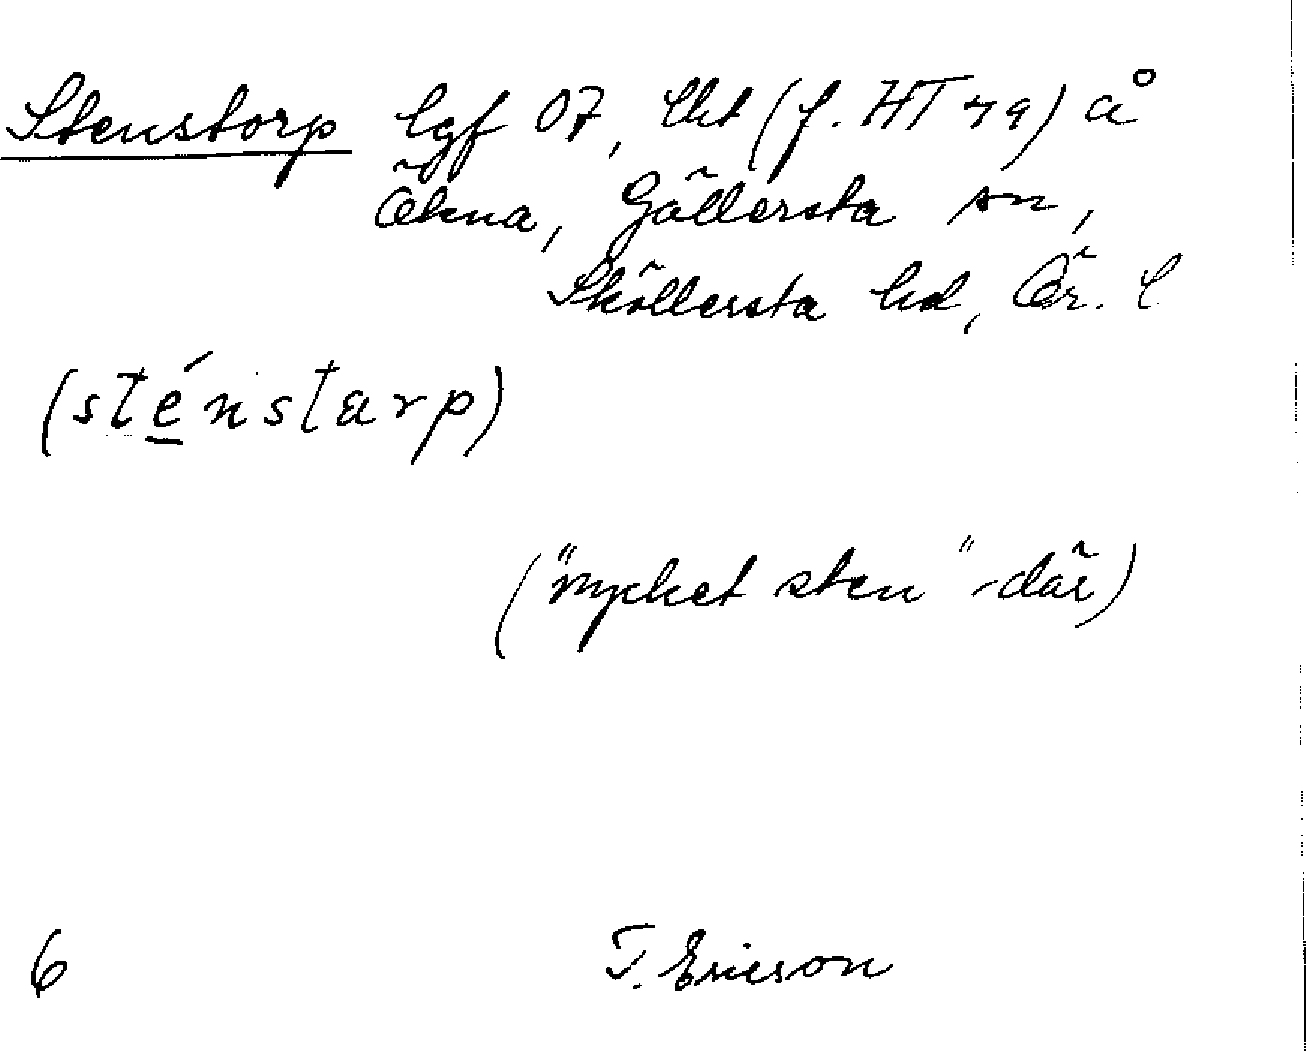 Stenstorp lgf 07, lht (f. HT 79) å
Ökna, Gällersta sn,
Sköllersta hd, Ör. l
(sténstarp)
("mycket sten" där)
6 T. Ericson